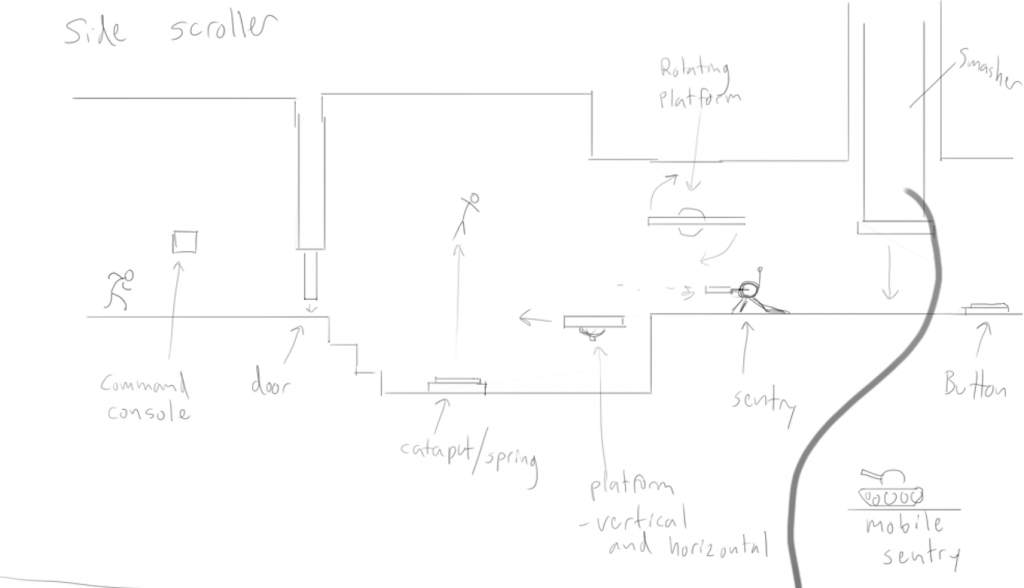 Side scroller
Rotating
Platform
Smasher
Command
console
door
cataput/spring
platform
-vertical
and horizontal
sentry
Button
mobile
sentry